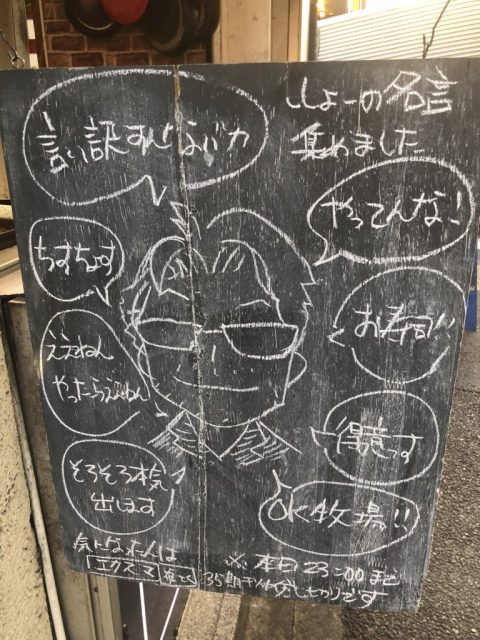 しょーの名言
集めました
言い訳すんなバカ
やってんな!
ちすちょす
お寿司!!
ええねん
やったらええねん
得意っす
そろそろ本気
出します
OK牧場!!
気になった人は
エクスマ
※本日23:00まで
35期
です